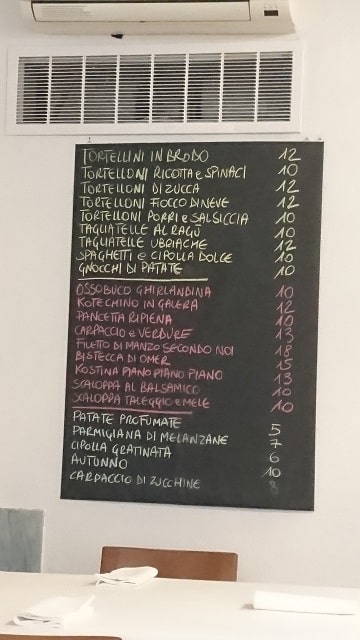 TORTELLINI IN BRODO 12
TORTELLONI RICOTTA e SPINACI 10
TORTELLONI DI ZUCCA 12
TORTELLONI FIOCCO DI NEVE 12
TORTELLONI PORRI e SALSICCIA 10
TAGLIATELLE AL RAGÙ 10
TAGLIATELLE UBRIACHE 12
SPAGHETTI e CIPOLLA DOLCE 10
GNOCCHI DI PATATE 10
OSSOBUCO GHIRLANDINA 10
KOTECHINO IN GALERA 12
PANCETTA RIPIENA 10
CARPACCIO e VERDURE 13
FILETTO DI MANZO SECONDO NOI 18
BISTECCA DI OMER 15
KOSTINA PIANO PIANO PIANO 13
SCALOPPA AL BALSAMICO 10
SCALOPPA TALEGGIO e MELE 10
PATATE PROFUMATE 5
PARMIGIANA DI MELANZANE 7
CIPOLLA GRATINATA 6
AUTUNNO 10
CARPACCIO DI ZUCCHINE 8